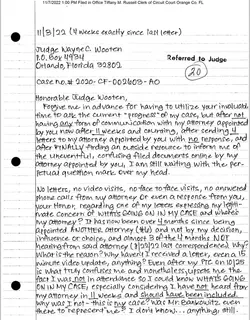 11/7/2022 1:00 PM Filed in Office Tiffany M. Russell Clerk of Circuit Court Orange Co. FL
11/3/22 (4 weeks exactly since last letter)
Judge Wayne C. Wooten
P.O. Box 4934
Orlando, Florida 32802
Referred to Judge
20
Case no.# 2020-CF-002603-AO
Honorable Judge Wooten,
Forgive me in advance for having to utilize your invaluable
time to ask the current "progress" of my case, but after not
having any form of communication with my attorney appointed
by you now after 11 weeks and counting, after sending 4
letters to my attorney appointed by you with no response, and
after FINALLY finding an outside resource to inform me of
the uneventful, confusing filed documents online by my
attorney appointed by you, I am still waiting with the per-
petual question mark over my head.
No letters, no video visits, no face to face visits, no answered
phone calls from my attorney or even a response from you,
your Honor, regarding one of my letters expressing my
concern of WHAT'S GOING ON IN MY CASE and where's
my attorney? It has now been over months since being
appointed ANOTHER attorney and not by my decision,
influence or choice, and almost 3 of the months NOT
hearing from said attorney last correspondence. Why?
What is the reason? Why haven't I received a letter, even a 15
minute video update, anything? Even after my PTC on 10/25
is what truly confuses me and nonetheless, upsets me the
fact I was not in attendance so I could know WHAT'S GOING
ON IN MY CASE, especially considering I have not heard from
my attorney in 11 weeks and should have been included.
Why was I not - this is my case? Was Mr. even
there to represent me? I don't know... anything, still.